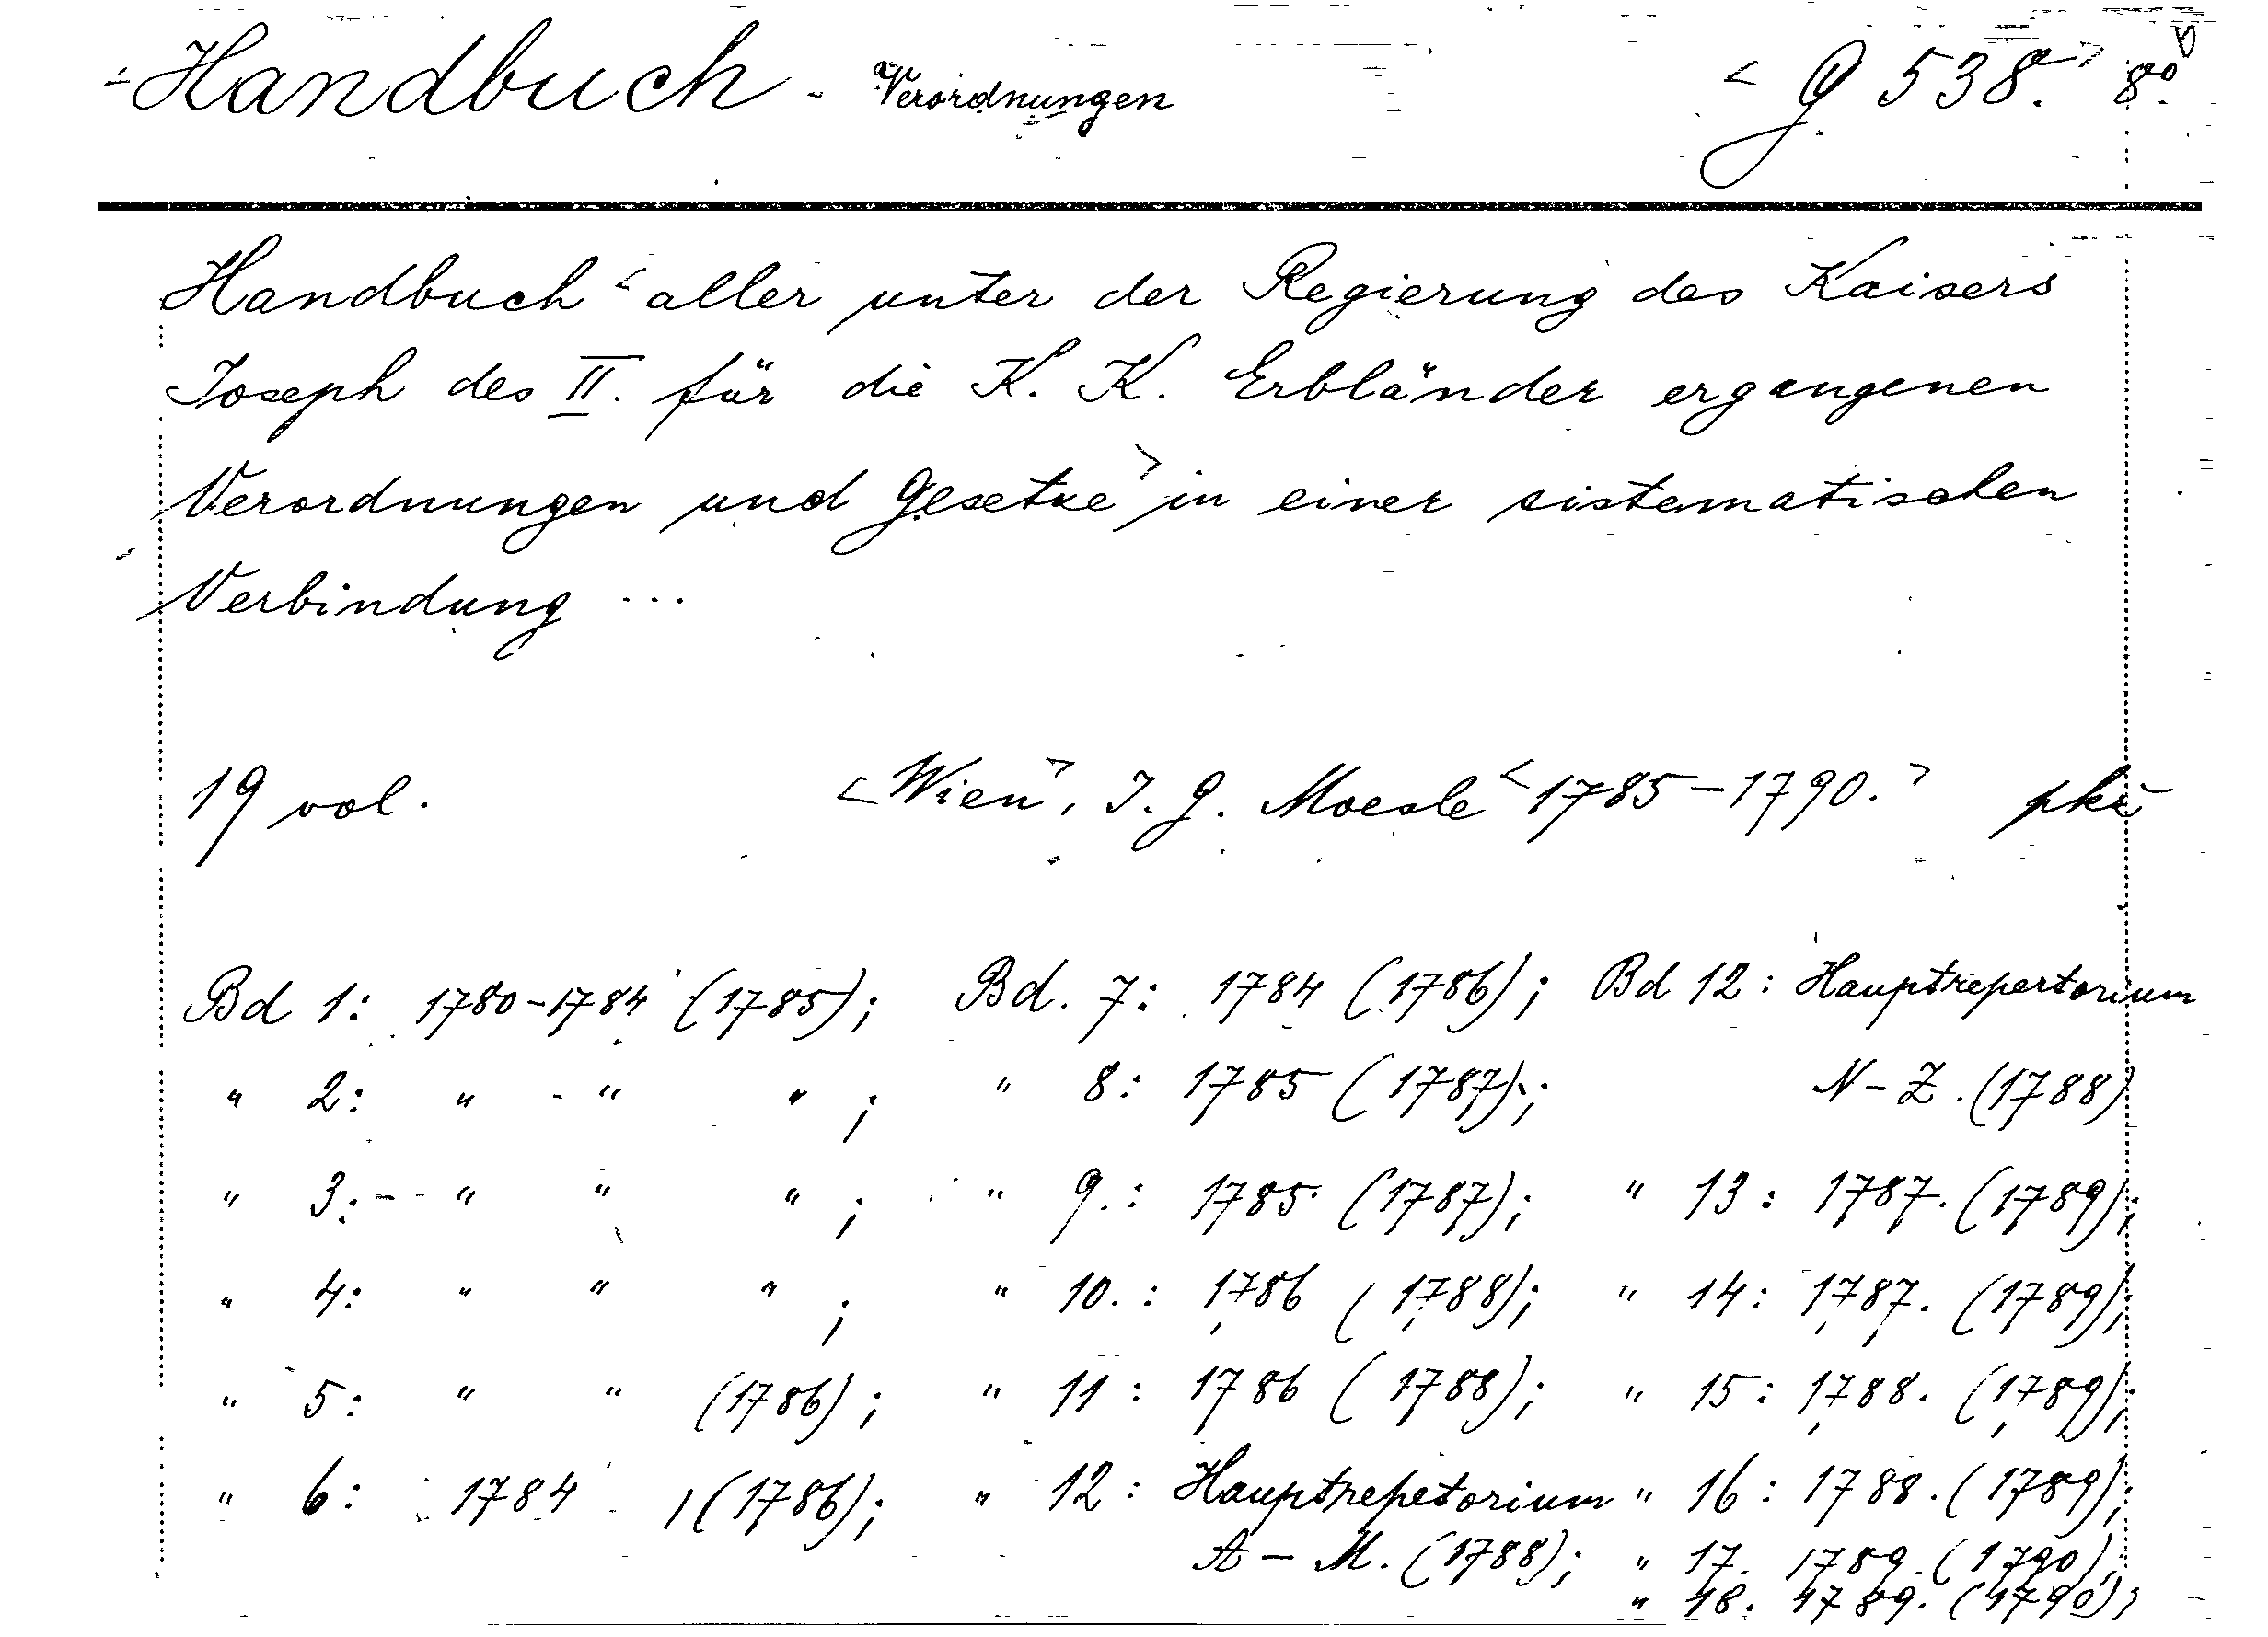 Handbuch - Verordnungen < G 538. > 8°.
Handbuch < aller unter der Regierung des Kaisers
Joseph des II. für die K. K. Erbländer ergangenen
Verordnungen und Gesetze > in einer sistematischen
Verbindung ...
19 vol. < Wien >, J. G. Moesle < 1785-1790. >
Bd 1: 1780-1784 (1785); Bd. 7: 1784 (1786); Bd 12: Hauptrepertorium
" 2: " - " " ; " 8: 1785 (1787); N-Z. (1788)
" 3: " " " ; " 9.: 1785 (1787); " 13: 1787. (1789);
" 4: " " " ; " 10.: 1786 (1788); " 14: 1787. (1789);
" 5: " " (1786); " 11: 1786 (1788); " 15: 1788. (1789);
" 6: 1784 (1786); " 12: Hauptrepetorium " 16: 1788. (1789);
A-M. (1788); " 17. 1789. (1790);
" 18. 1789. (1790);